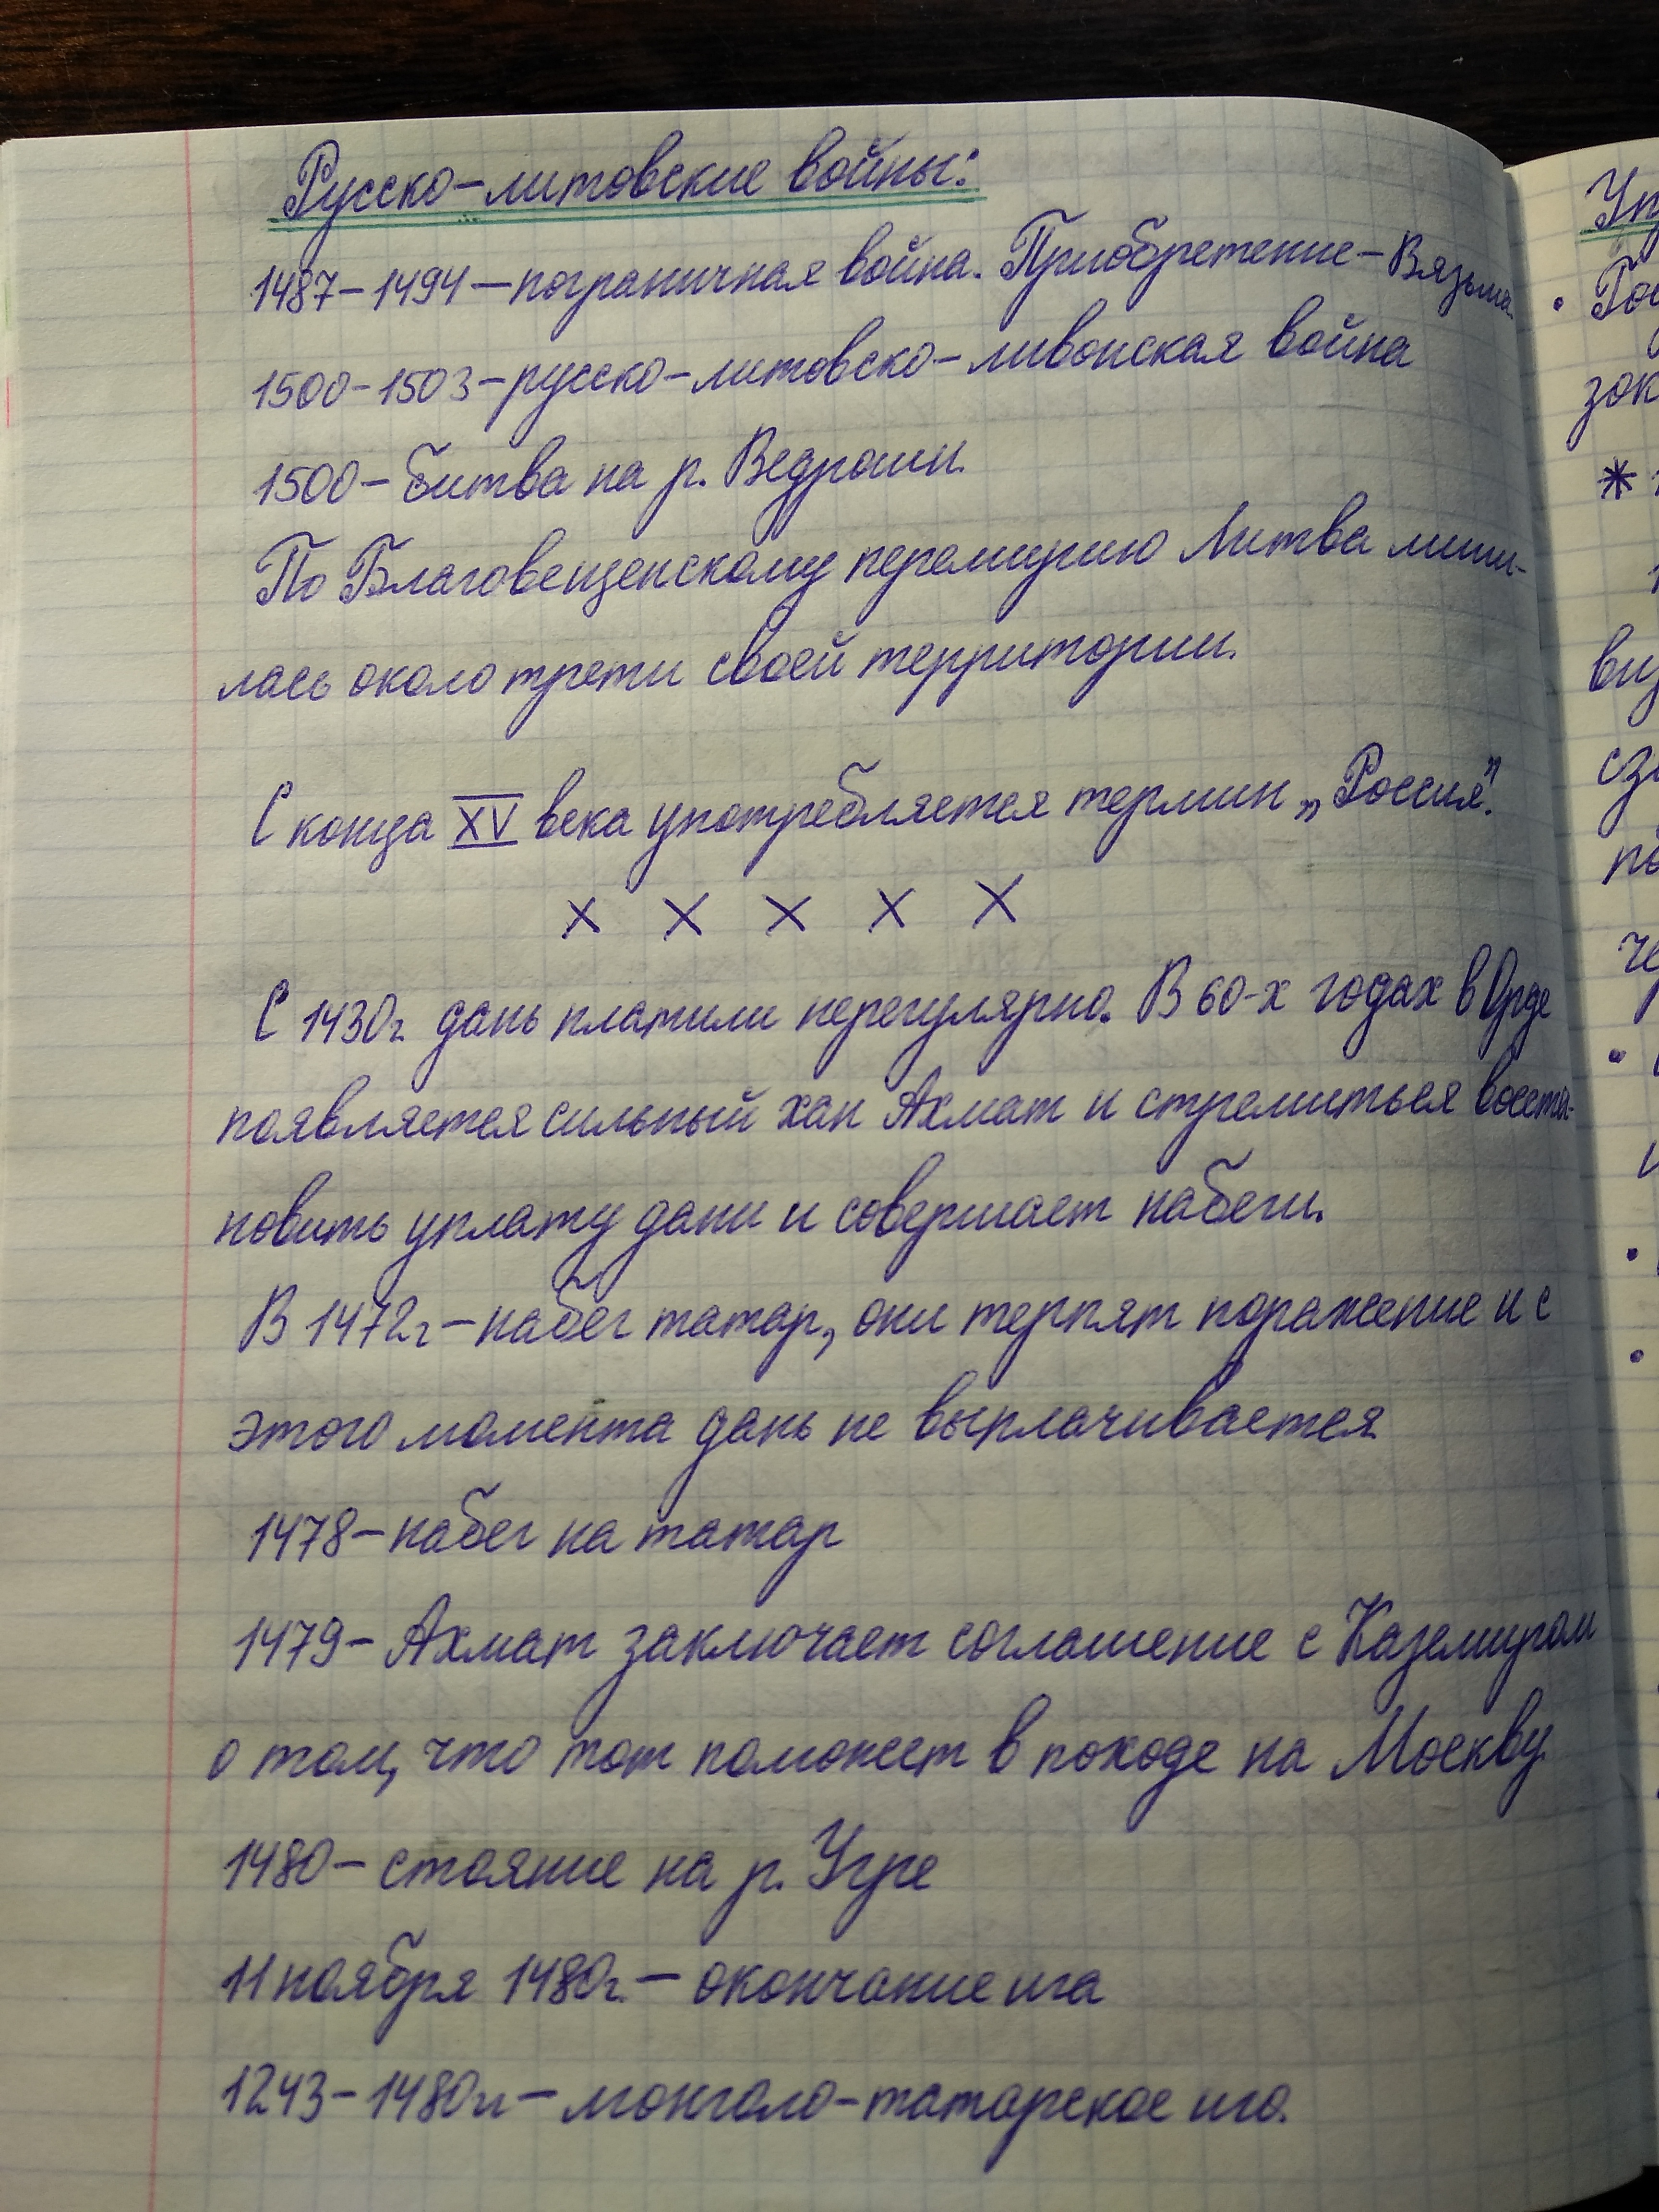 Русско-литовские войны:
1487-1494 – пограничная война. Приобретение – Вязьма.
1500-1503 – русско-литовско-ливонская война
1500 – битва на р. Ведроши.
По Благовещенскому перемирию Литва лиши-
лась около трети своей территории.
С конца XV века употребляется термин „Россия".
× × × × ×
С 1430г. дань платили нерегулярно. В 60-х годах в Орде
появляется сильный хан Ахмат и стремиться восста-
новить уплату дани и совершает набеги.
В 1472г – набег татар, они терпят поражение и с
этого момента дань не выплачивается
1478 – набег на татар
1479 – Ахмат заключает соглашение с Каземиром
о том, что тот поможет в походе на Москву.
1480 – стояние на р. Угре
11 ноября 1480г. – окончание ига
1243-1480гг – монголо-татарское иго.